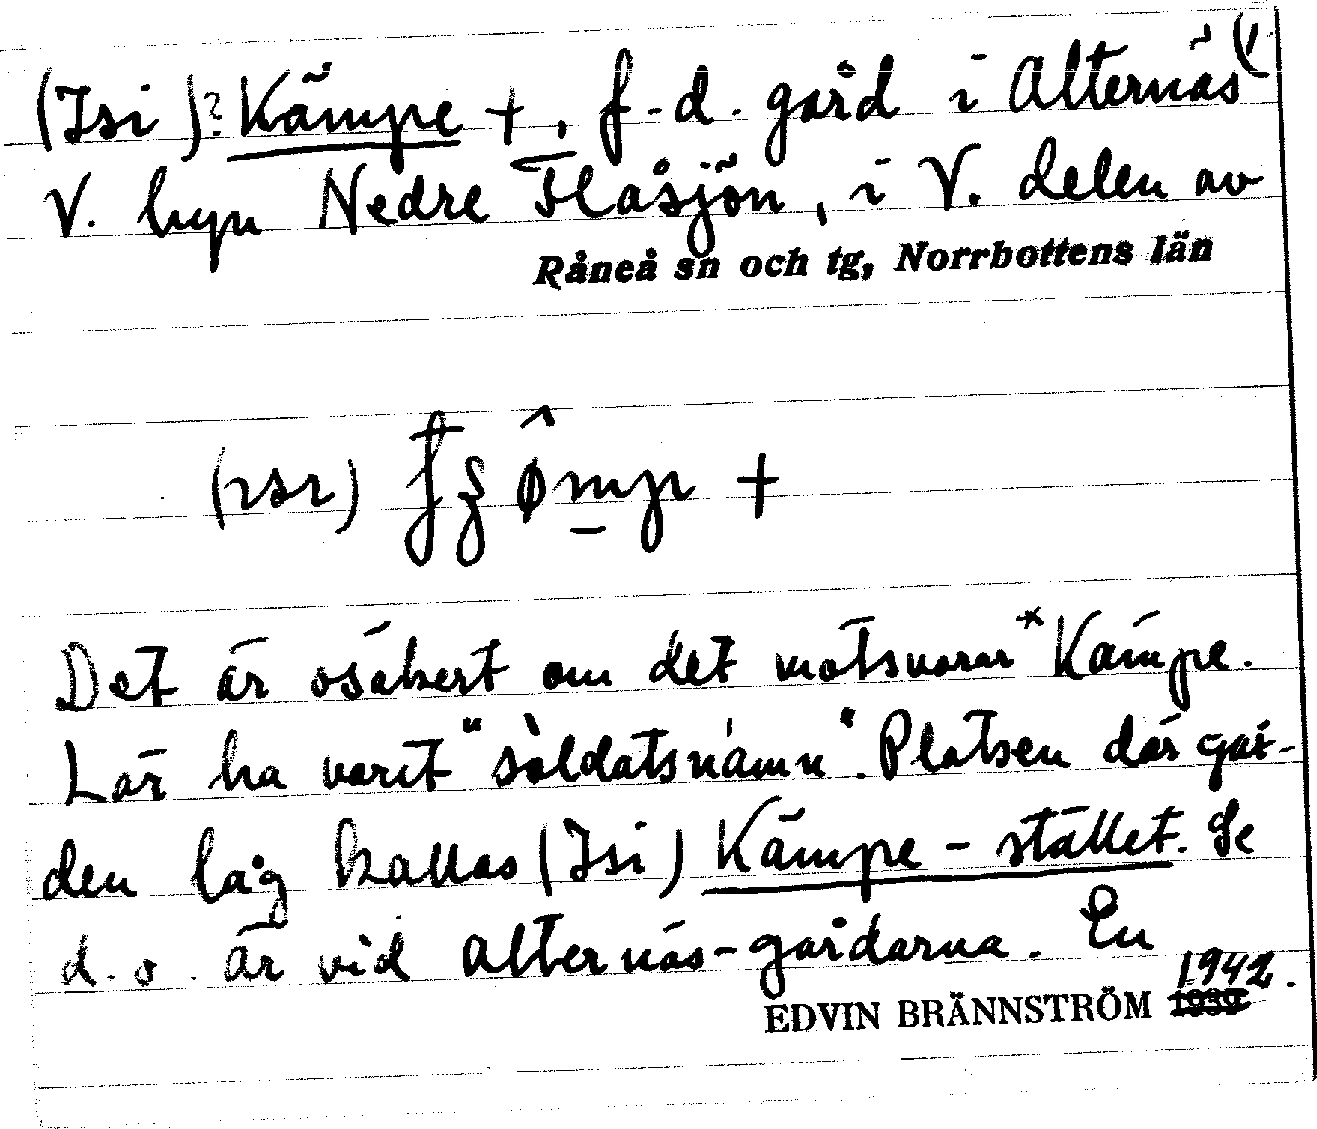 (Isi)? Kämpe +, f.d. gård i Alternäs (1
V. byn Nedre Flåsjön, i V. delen av
Råneå sn och tg, Norrbottens län
Det är osäkert om det motsvarar *Kämpe.
Lär ha varit "soldatsnamn". Platsen där går-
den låg kallas (Isi) Kämpe-stället. Se
d.o. är vid Alternäs-gårdarna. En
EDVIN BRÄNNSTRÖM 1942.